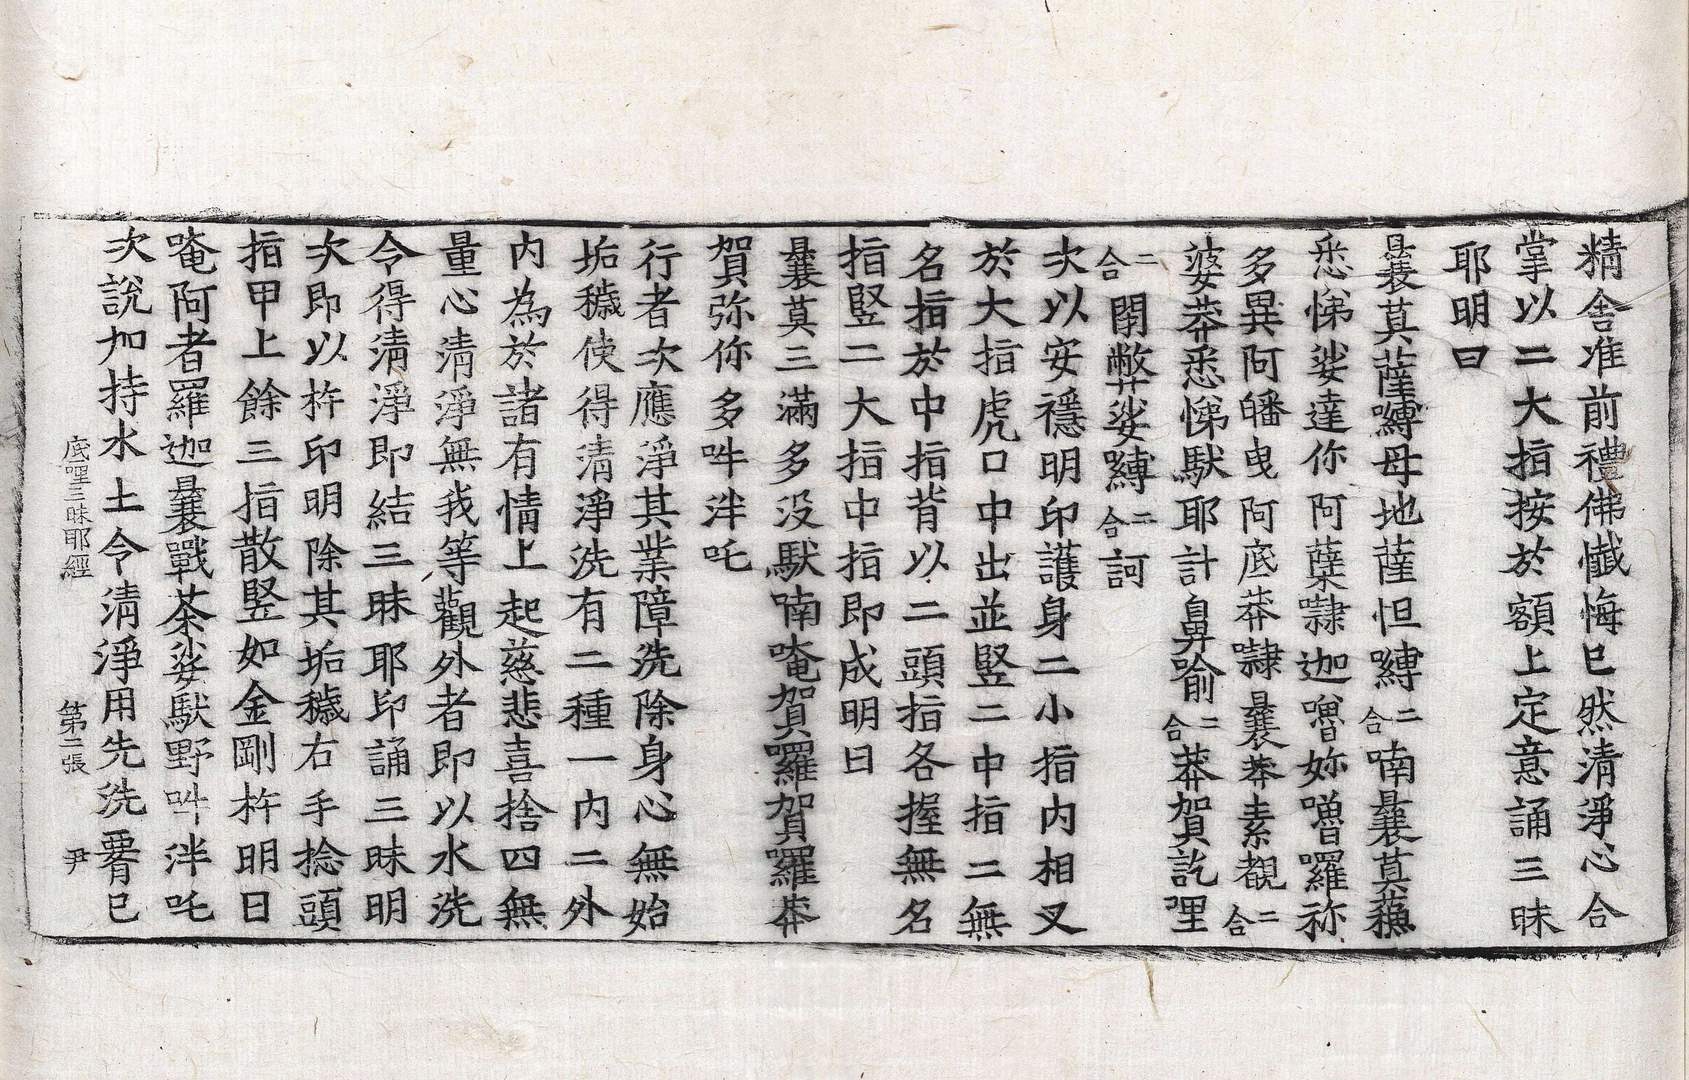 精舍准前禮佛懺悔已然清淨心合
掌以二大指按於額上定意誦三昧
耶明曰
曩莫薩嚩母地薩怛嚩二合喃曩莫蘓
悉悌娑達你阿蘖㘑迦嚕妳嚕羅祢
多異阿皤曳阿底莽㘑曩莽素覩二合
婆莽悉悌馱耶計鼻喻二合莽賀訖哩
二合閉弊娑嚩二合訶
次以安穩明印護身二小指內相叉
於大指虎口中出並竪二中指二無
名指於中指背以二頭指各握無名
指竪二大指中指即成明曰
曩莫三滿多没馱喃唵賀囉賀羅莽
賀弥你多吽泮吒
行者次應淨其業障洗除身心無始
垢穢使得清淨洗有二種一內二外
內為於諸有情上起慈悲喜捨四無
量心清淨無我等觀外者即以水洗
令得清淨即結三昧耶印誦三昧明
次即以杵印明除其垢穢右手捻頭
指甲上餘三指散竪如金剛杵明曰
唵阿者羅迦曩戰荼娑馱野吽泮吒
次說加持水土令清淨用先洗䨇已
底哩三昧耶經 第二張 尹